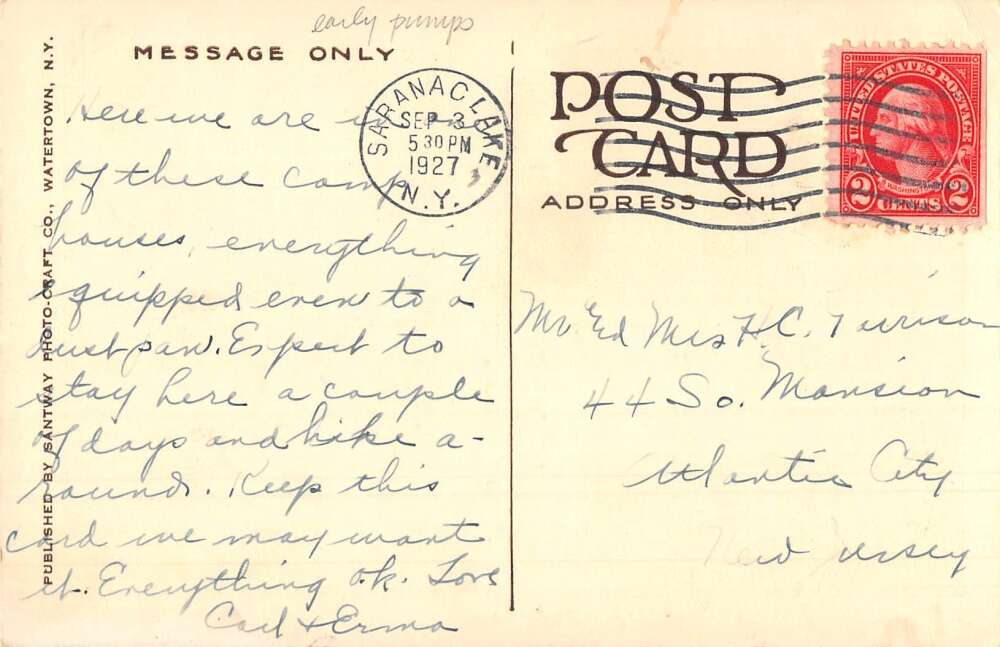 early pumps
MESSAGE ONLY
PUBLISHED BY SANTWAY PHOTO-CRAFT CO., WATERTOWN, N.Y.
Here we are in one
of these camp
houses, everything
equipped even to a
dust pan. Expect to
stay here a couple
of days and hike a-
round. Keep this
card we may want
it. Everything o.k. Love
Carl + Erma
SARANAC LAKE
SEP 3
5 30 PM
1927
N.Y.
POST
CARD
ADDRESS ONLY
UNITED STATES POSTAGE
WASHINGTON
2 CENTS 2
Mr Ed Mrs H.C.
44 So. Mansion
Atlantic City
New Jersey